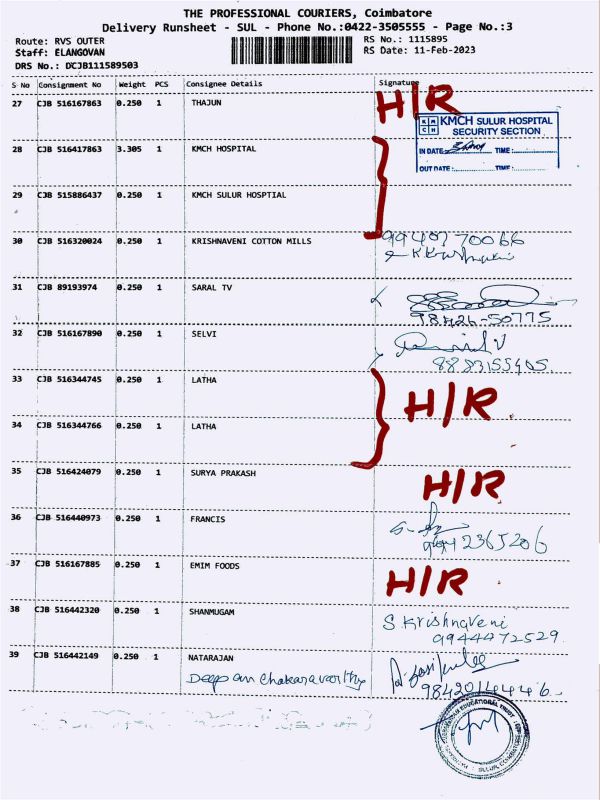 THE PROFESSIONAL COURIERS, Coimbatore
Delivery Runsheet - SUL - Phone No.:0422-3505555 - Page No.:3
Route: RVS OUTER
Staff: ELANGOVAN
DRS No.: DCJB111589503
RS No.: 1115895
RS Date: 11-Feb-2023
S No Consignment No Weight PCS Consignee Details Signature
27 CJB 516167863 0.250 1 THAJUN H/R
KMCH SULUR HOSPITAL
SECURITY SECTION
IN DATE: TIME:
OUT DATE: TIME:
28 CJB 516417863 3.305 1 KMCH HOSPITAL
29 CJB 515886437 0.250 1 KMCH SULUR HOSPTIAL
30 CJB 516320024 0.250 1 KRISHNAVENI COTTON MILLS 9940770066
31 CJB 89193974 0.250 1 SARAL TV
98426-50775
32 CJB 516167890 0.250 1 SELVI
33 CJB 516344745 0.250 1 LATHA H/R
34 CJB 516344766 0.250 1 LATHA
35 CJB 516424079 0.250 1 SURYA PRAKASH H/R
36 CJB 516440973 0.250 1 FRANCIS
37 CJB 516167885 0.250 1 EMIM FOODS H/R
38 CJB 516442320 0.250 1 SHANMUGAM S Krishnaveni
9944472529
39 CJB 516442149 0.250 1 NATARAJAN
Deepan Chakaravarthy